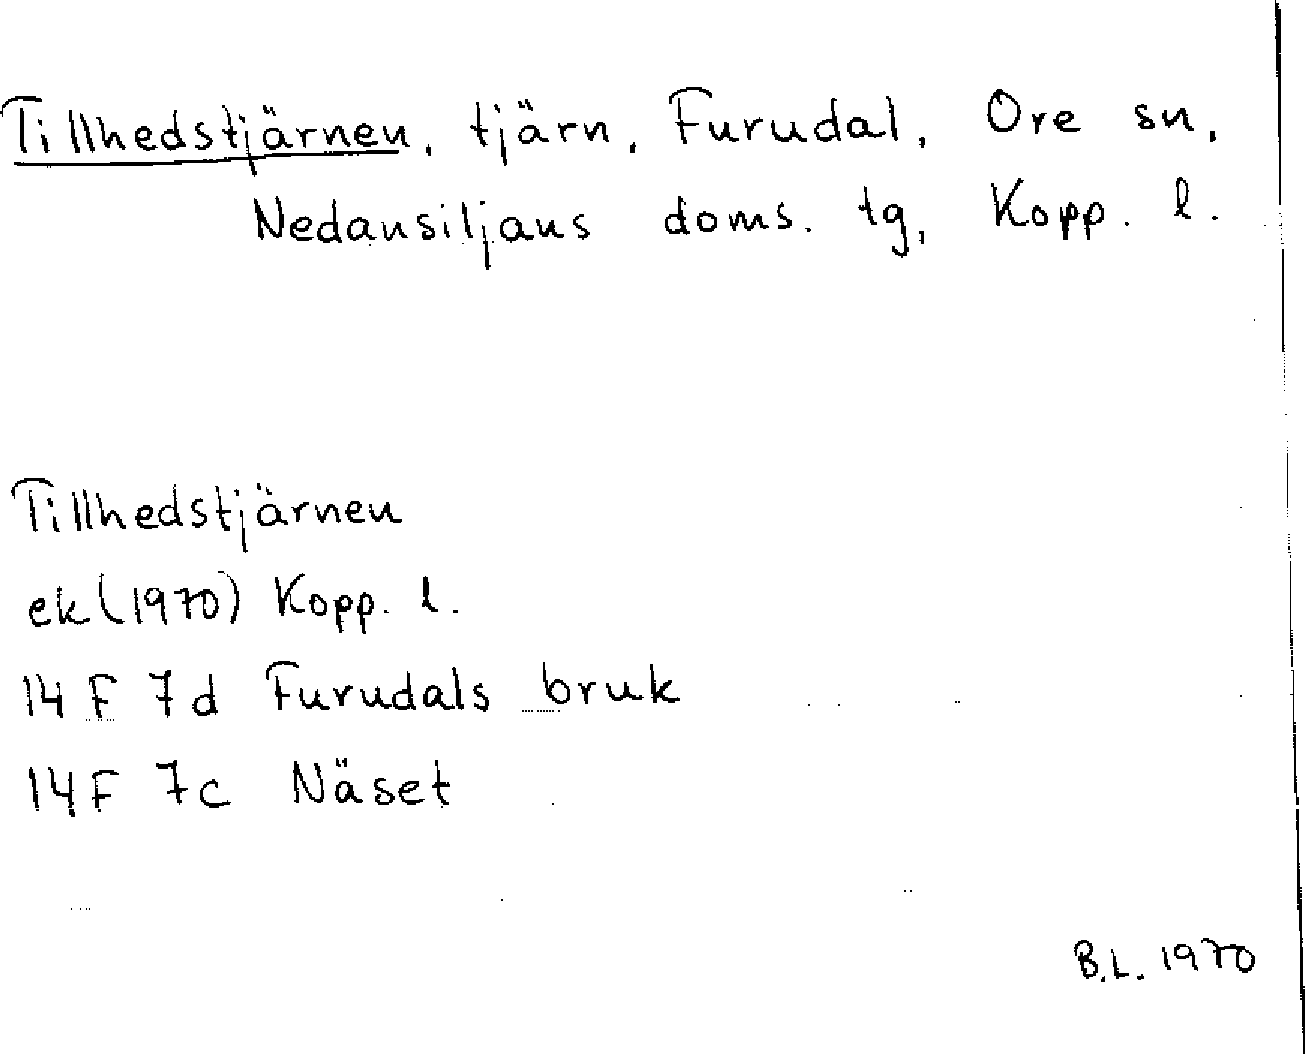 Tillhedstjärnen, tjärn, Furudal, Ore sn,
Nedansiljans doms. tg, Kopp. l.
Tillhedstjärnen
ek (1970) Kopp. l.
14 F 7d Furudals bruk
14F 7c Näset
B.L. 1970